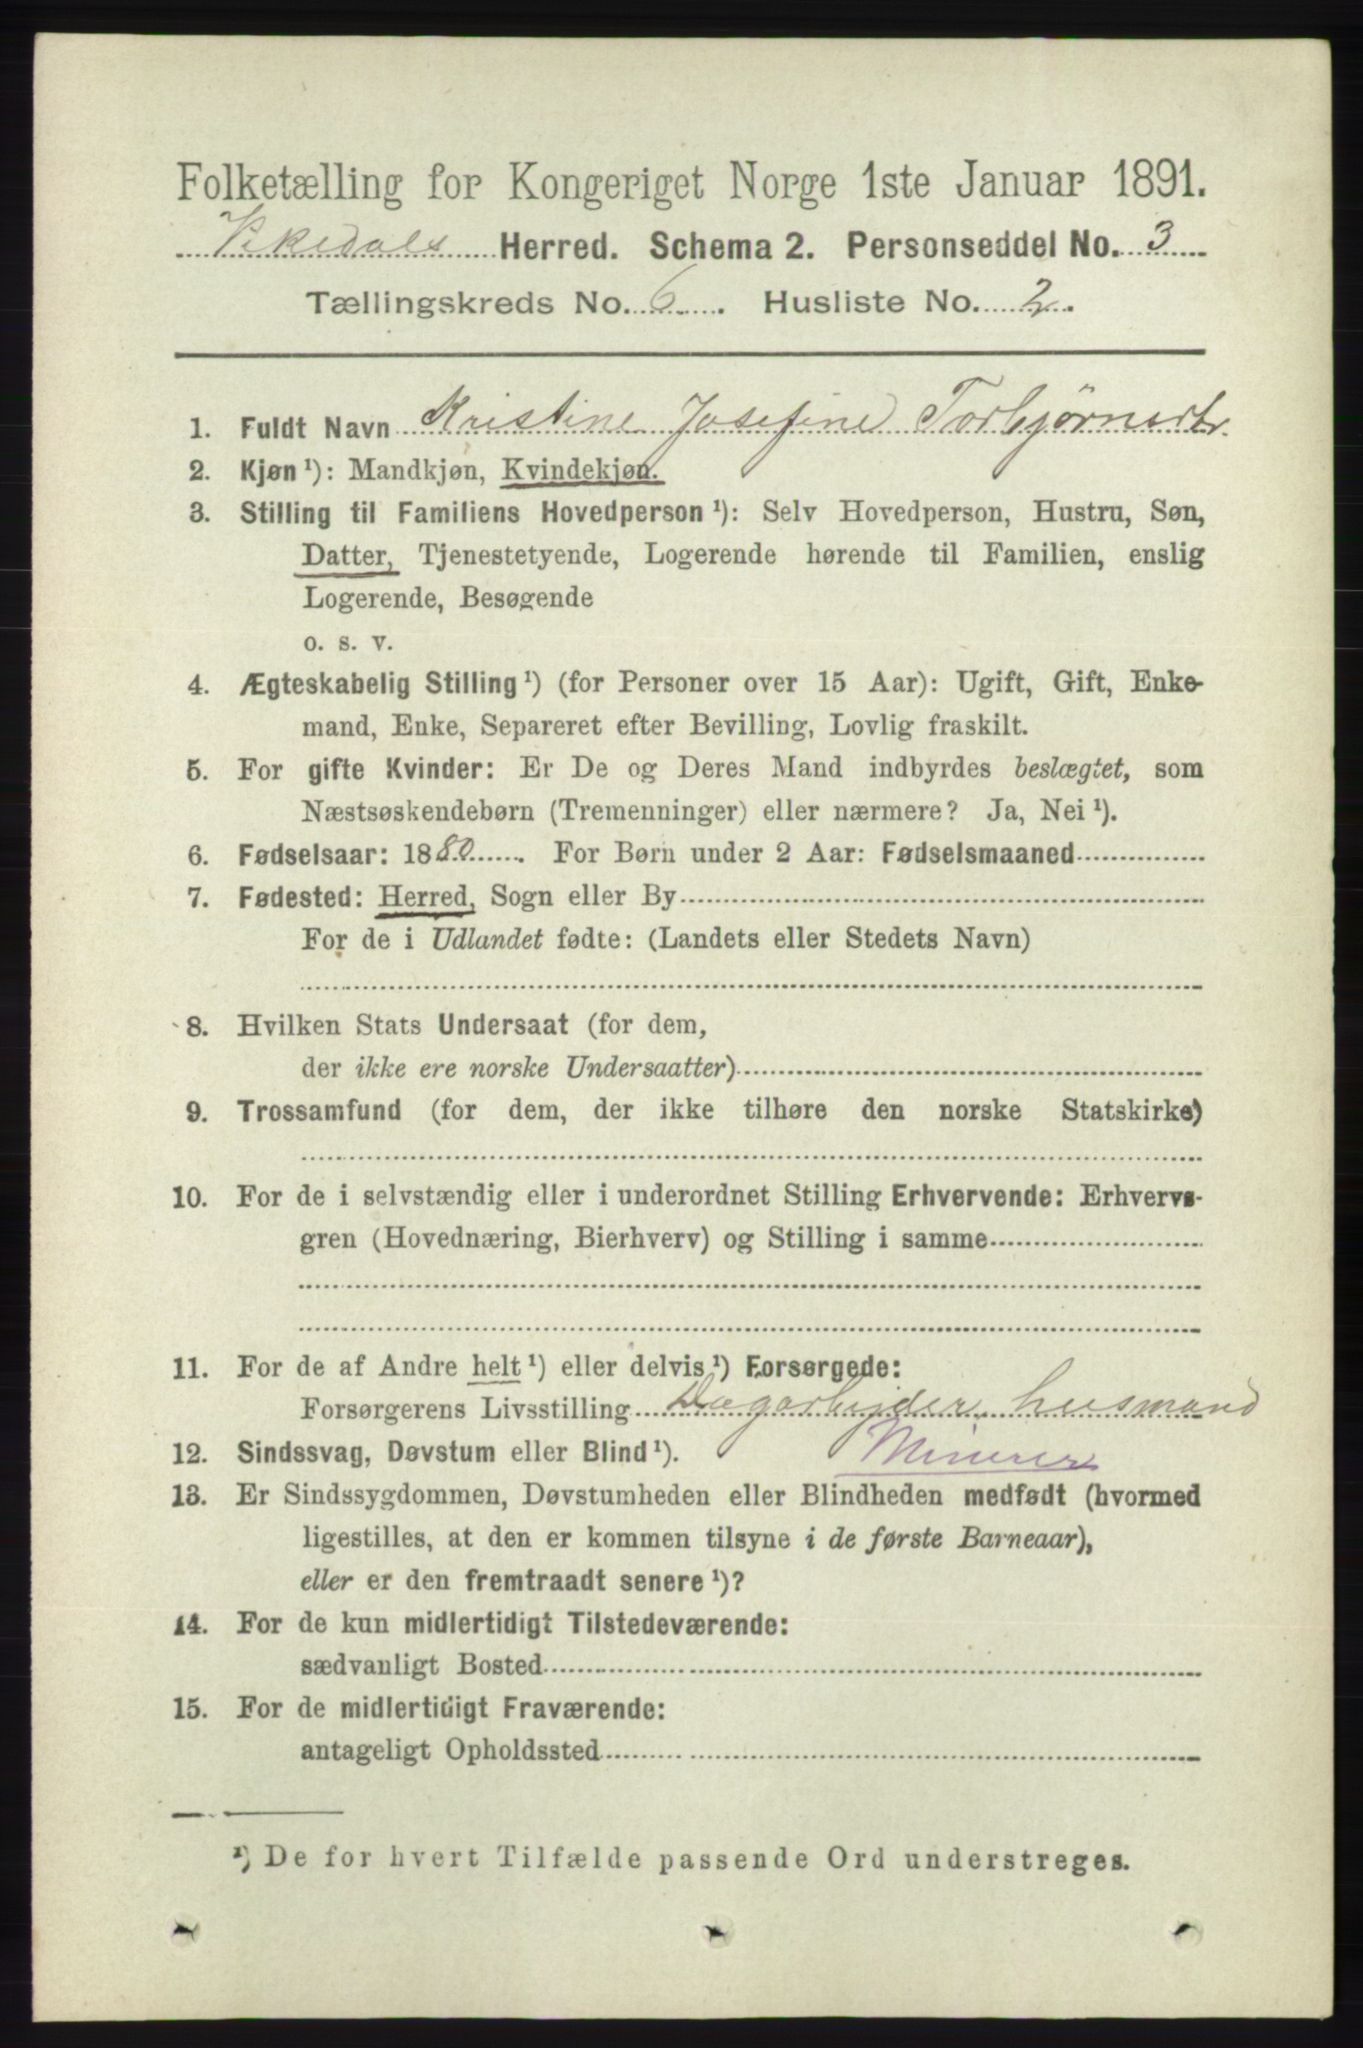 Folketælling for Kongeriget Norge 1ste Januar 1891.
Vikedals Herred. Schema 2. Personseddel No. 3
Tællingskreds No. 6. Husliste No. 2.
1. Fuldt Navn Kristine Josefine Torbjørnsdtr.
2. Kjøn ¹): Mandkjøn, Kvindekjøn.
3. Stilling til Familiens Hovedperson ¹): Selv Hovedperson, Hustru, Søn,
Datter, Tjenestetyende, Logerende hørende til Familien, enslig
Logerende, Besøgende
o. s. v.
4. Ægteskabelig Stilling ¹) (for Personer over 15 Aar): Ugift, Gift, Enke-
mand, Enke, Separeret efter Bevilling, Lovlig fraskilt.
5. For gifte Kvinder: Er De og Deres Mand indbyrdes beslægtet, som
Næstsøskendebørn (Tremenninger) eller nærmere? Ja, Nei ¹).
6. Fødselsaar: 1880. For Børn under 2 Aar: Fødselsmaaned
7. Fødested: Herred, Sogn eller By
For de i Udlandet fødte: (Landets eller Stedets Navn)
8. Hvilken Stats Undersaat (for dem,
der ikke ere norske Undersaatter)
9. Trossamfund (for dem, der ikke tilhøre den norske Statskirke)
10. For de i selvstændig eller i underordnet Stilling Erhvervende: Erhvervs-
gren (Hovednæring, Bierhverv) og Stilling i samme
11. For de af Andre helt ¹) eller delvis ¹) Forsørgede:
Forsørgerens Livsstilling Dagarbeider, husmand
12. Sindssvag, Døvstum eller Blind ¹). Minerer
13. Er Sindssygdommen, Døvstumheden eller Blindheden medfødt (hvormed
ligestilles, at den er kommen tilsyne i de første Barneaar),
eller er den fremtraadt senere ¹)?
14. For de kun midlertidigt Tilstedeværende:
sædvanligt Bosted
15. For de midlertidigt Fraværende:
antageligt Opholdssted
¹) De for hvert Tilfælde passende Ord understreges.